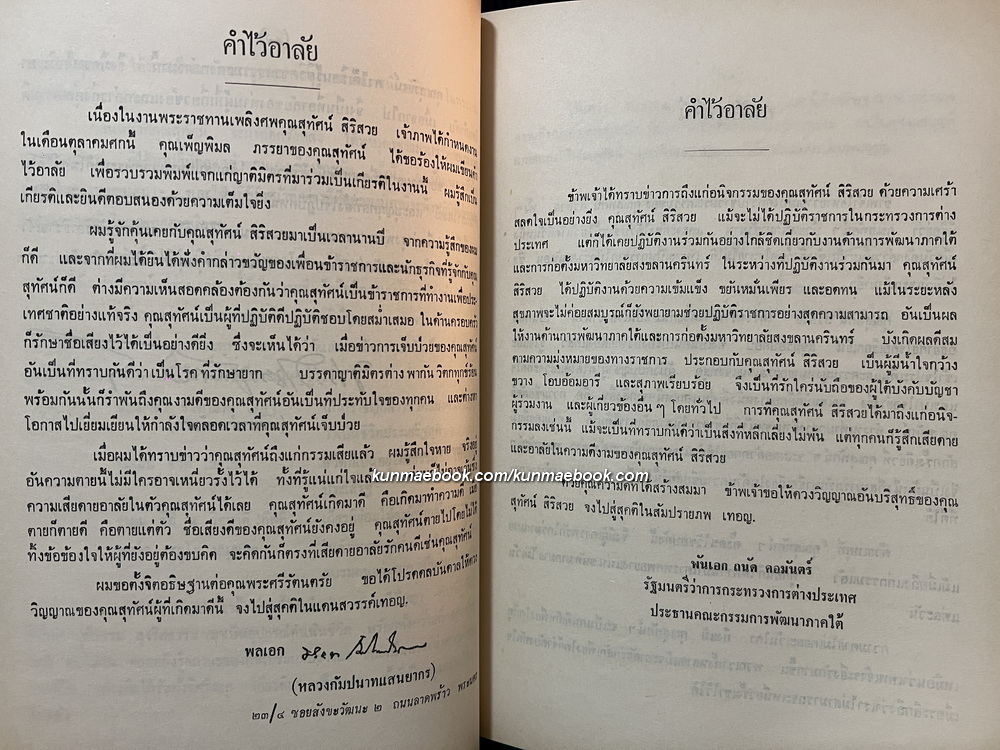 คำไว้อาลัย
เนื่องในงานพระราชทานเพลิงศพคุณสุทัศน์ สิริสวย เจ้าภาพได้กำหนดงาน
ในเดือนตุลาคมศกนี้ คุณเพ็ญพิมล ภรรยาของคุณสุทัศน์ ได้ขอร้องให้ผมเขียนคำ
ไว้อาลัย เพื่อรวบรวมพิมพ์แจกแก่ญาติมิตรที่มาร่วมเป็นเกียรติในงานนี้ ผมรู้สึกเป็น
เกียรติและยินดีตอบสนองด้วยความเต็มใจยิ่ง
ผมรู้จักคุ้นเคยกับคุณสุทัศน์ สิริสวยมาเป็นเวลานานปี จากความรู้สึกของผม
ก็ดี และจากที่ผมได้ยินได้ฟังคำกล่าวขวัญของเพื่อนข้าราชการและนักธุรกิจที่รู้จักกับคุณ
สุทัศน์ก็ดี ต่างมีความเห็นสอดคล้องต้องกันว่าคุณสุทัศน์เป็นข้าราชการที่ทำงานเพื่อประ-
เทศชาติอย่างแท้จริง คุณสุทัศน์เป็นผู้ที่ปฏิบัติดีปฏิบัติชอบโดยสม่ำเสมอ ในด้านครอบครัว
ก็รักษาชื่อเสียงไว้ได้เป็นอย่างดียิ่ง ซึ่งจะเห็นได้ว่า เมื่อข่าวการเจ็บป่วยของคุณสุทัศน์
อันเป็นที่ทราบกันดีว่าเป็นโรคที่รักษายาก บรรดาญาติมิตรต่างพากันวิตกทุกข์ร้อน
พร้อมกันนั้นก็รำพันถึงคุณงามดีของคุณสุทัศน์อันเป็นที่ประทับใจของทุกคน และต่างหา
โอกาสไปเยี่ยมเยียนให้กำลังใจตลอดเวลาที่คุณสุทัศน์เจ็บป่วย
เมื่อผมได้ทราบข่าวว่าคุณสุทัศน์ถึงแก่กรรมเสียแล้ว ผมรู้สึกใจหาย จริงอยู่
อันความตายนี้ไม่มีใครอาจเหนี่ยวรั้งไว้ได้ ทั้งที่รู้แน่แก่ใจ
ความเสียดายอาลัยในตัวคุณสุทัศน์ได้เลย คุณสุทัศน์เกิดมาดี คือเกิดมาทำความดี เมื่อ
ตายก็ตายดี คือตายแต่ตัว ชื่อเสียงดีของคุณสุทัศน์ยังคงอยู่ คุณสุทัศน์ตายไปโดยไม่ได้
ทิ้งข้อข้องใจให้ผู้ที่ยังอยู่ต้องขบคิด จะคิดกันก็ตรงที่เสียดายอาลัยรักคนดีเช่นคุณสุทัศน์
ผมขอตั้งจิตอธิษฐานต่อคุณพระศรีรัตนตรัย ขอได้โปรดดลบันดาลให้ดวง
วิญญาณของคุณสุทัศน์ผู้ที่เกิดมาดีนี้ จงไปสู่สุคติในแดนสวรรค์เทอญ.
พลเอก
(หลวงกัมปนาทแสนยากร)
๒๓/๔ ซอยสังขะวัฒนะ ๒ ถนนลาดพร้าว พระนคร
คำไว้อาลัย
ข้าพเจ้าได้ทราบข่าวการถึงแก่อนิจกรรมของคุณสุทัศน์ สิริสวย ด้วยความเศร้า
สลดใจเป็นอย่างยิ่ง คุณสุทัศน์ สิริสวย แม้จะไม่ได้ปฏิบัติราชการในกระทรวงการต่าง
ประเทศ แต่ก็ได้เคยปฏิบัติงานร่วมกันอย่างใกล้ชิดเกี่ยวกับงานด้านการพัฒนาภาคใต้
และการก่อตั้งมหาวิทยาลัยสงขลานครินทร์ ในระหว่างที่ปฏิบัติงานร่วมกันมา คุณสุทัศน์
สิริสวย ได้ปฏิบัติงานด้วยความเข้มแข็ง ขยันหมั่นเพียร และอดทน แม้ในระยะหลัง
สุขภาพจะไม่ค่อยสมบูรณ์ก็ยังพยายามช่วยปฏิบัติราชการอย่างสุดความสามารถ อันเป็นผล
ให้งานด้านการพัฒนาภาคใต้และการก่อตั้งมหาวิทยาลัยสงขลานครินทร์ บังเกิดผลดีสม
ตามความมุ่งหมายของทางราชการ ประกอบกับคุณสุทัศน์ สิริสวย เป็นผู้มีน้ำใจกว้าง
ขวาง โอบอ้อมอารี และสุภาพเรียบร้อย จึงเป็นที่รักใคร่นับถือของผู้ใต้บังคับบัญชา
ผู้ร่วมงาน และผู้เกี่ยวข้องอื่น ๆ โดยทั่วไป การที่คุณสุทัศน์ สิริสวยได้มาถึงแก่อนิจ-
กรรมลงเช่นนี้ แม้จะเป็นที่ทราบกันดีว่าเป็นสิ่งที่หลีกเลี่ยงไม่พ้น แต่ทุกคนก็รู้สึกเสียดาย
และอาลัยในความดีงามของคุณสุทัศน์ สิริสวย
ด้วยคุณความดีที่ได้สร้างสมมา ข้าพเจ้าขอให้ดวงวิญญาณอันบริสุทธิ์ของคุณ
สุทัศน์ สิริสวย จงไปสู่สุคติในสัมปรายภพ เทอญ.
พันเอก ถนัด คอมันตร์
รัฐมนตรีว่าการกระทรวงการต่างประเทศ
ประธานคณะกรรมการพัฒนาภาคใต้
kunmaebook.com/kunmaebook.com